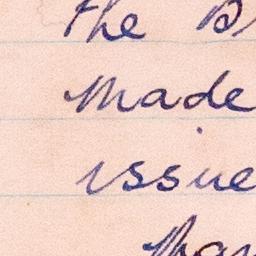 the
made
issue